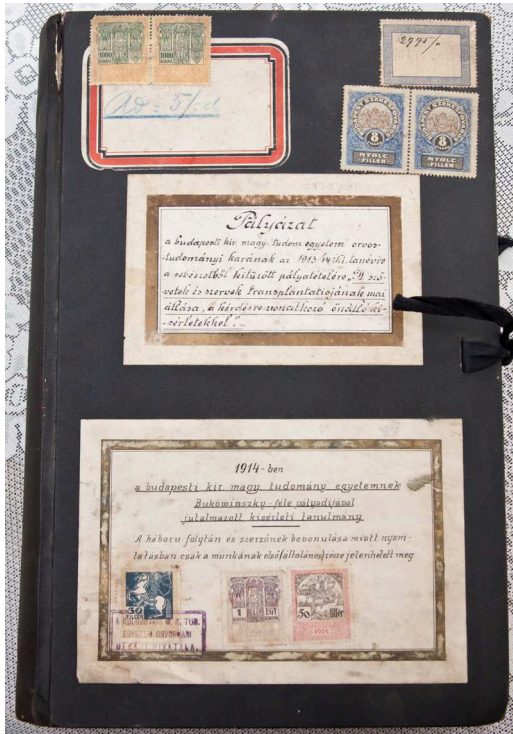 1000 1000
2795/
BUDAPEST SZÉKES
8
NYOLC
FILLÉR
BUDAPEST SZÉKES
8
NYOLC
FILLÉR
Pályázat
a budapesti kir. magy. tudom. egyetem orvos-
tudományi karának az 1913/14iki tanévre
a sebészetből kitűzött pályatételére: "A szö-
vetek és szervek transplantatiojának mai
állása, a kérdésre vonatkozó önálló kí-
sérletekkel".-
1914-ben
a budapesti kir. magy. tudomány egyetemnek
Bukowinszky-féle pályadíjával
jutalmazott kisérleti tanulmány
A háboru folytán és szerzőnek bevonulása miatt nyom-
tatásban csak a munkának első(általános) része jelenhetett meg
30
1 EGY
50 fillér
1914
A KOLOZSVÁRI M. K. TUD.
EGYETEM ORVOSKARI
HIVATALA.